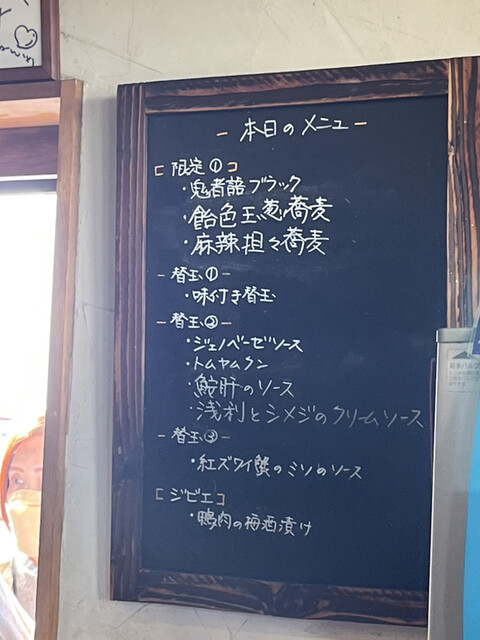 - 本日のメニュー -
[限定①]
・鬼者語ブラック
・飴色玉葱蕎麦
・麻辣担々蕎麦
- 替玉① -
・味付き替玉
- 替玉② -
・ジェノベーゼソース
・トムヤムクン
・鮟肝のソース
・浅利とシメジのクリームソース
- 替玉③ -
・紅ズワイ蟹のミソのソース
[ジビエ]
・鴨肉の梅酒漬け